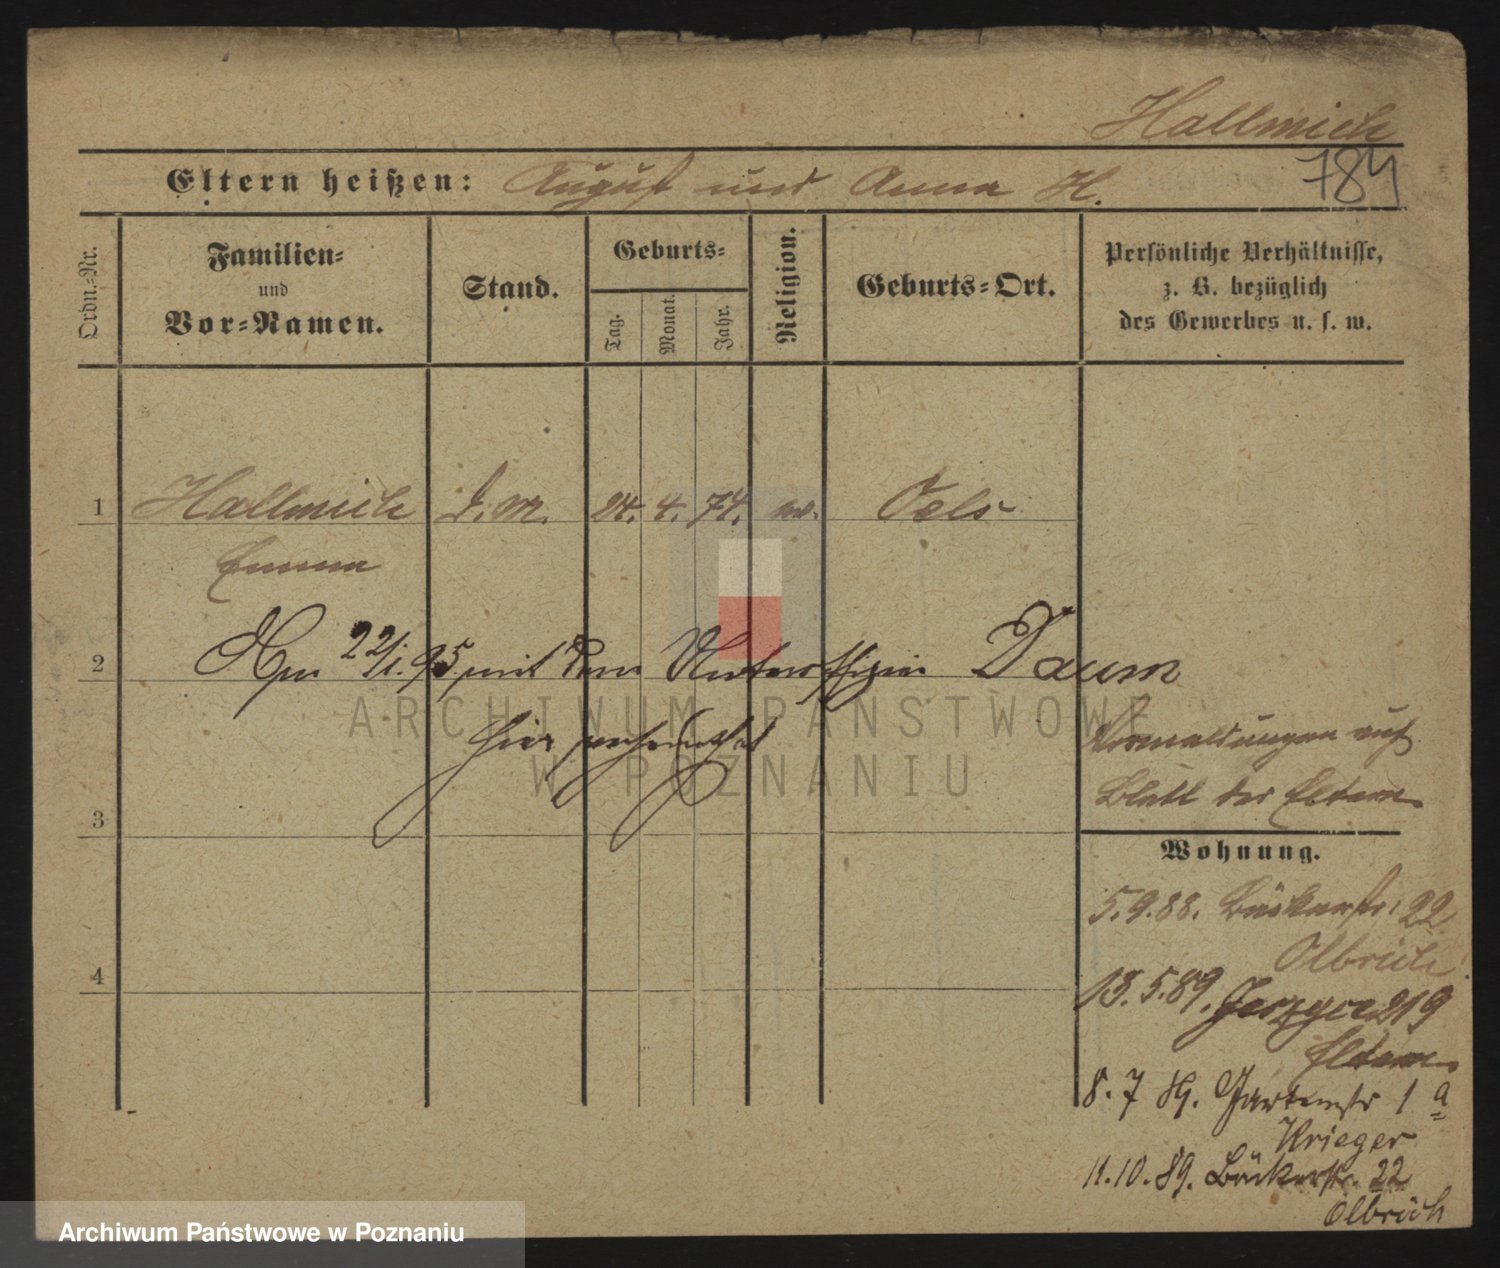 Hallmich
784
Eltern heißen: August und Anna H.
Ordn.-Nr.
Familien-
und
Vor-Namen.
Stand.
Geburts-
Tag.
Monat.
Jahr.
Religion.
Geburts-Ort.
Persönliche Verhältnisse,
z. B. bezüglich
des Gewerbes u. s. w.
1 Hallmich d. M. 24. 4. 74. ev. Oels
Emma
2 22/1.95 mit dem Unteroffizier Daum
hier verheirathet
Anmeldungen auf
Blatt der Eltern
3
Wohnung.
5.9.88. Bäckerstr. 22
Olbrich
4
13.5.89. Jerzyce 219
Eltern
8.7 89. Gartenstr 1 a
Krieger
11.10.89. Bäckerstr. 22
Olbrich
ARCHIWUM PAŃSTWOWE
W POZNANIU
Archiwum Państwowe w Poznaniu